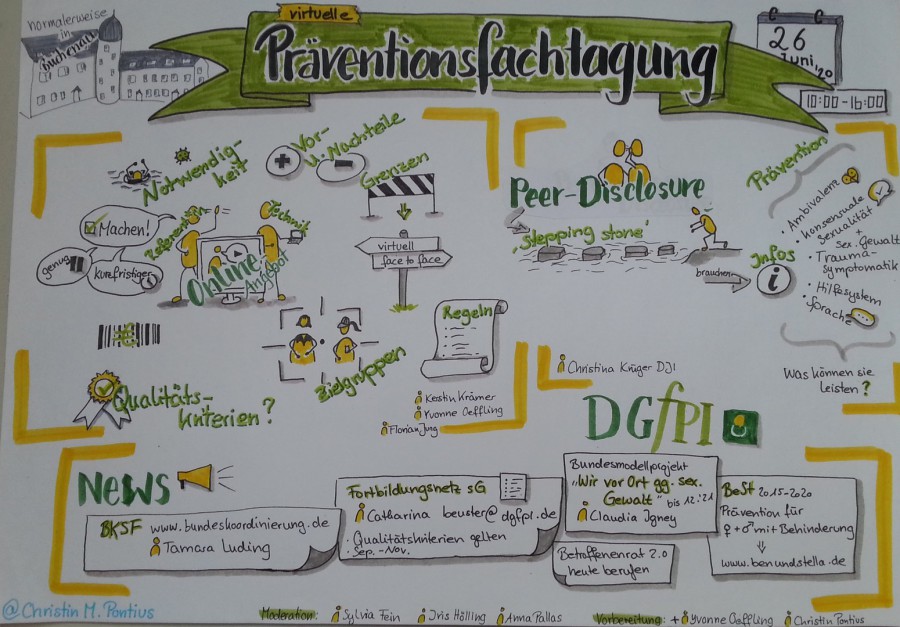 normalerweise
in
Buchenau
virtuelle
Präventionsfachtagung
26
Juni '20
10:00-16:00
Notwendig-
keit
Vor-
u. Nachteile
Grenzen
Machen!
genug
kurzfristiger
Referentin
Technik
Online
Angebot
virtuell
face to face
Zielgruppen
Regeln
Qualitäts-
kriterien?
Kerstin Krämer
Yvonne Oeffling
Florian Jung
Peer-Disclosure
'stepping stone'
brauchen
Infos
i
Prävention
• Ambivalenz
• konsensuale
Sexualität
+
sex. Gewalt
• Trauma-
symptomatik
• Hilfesystem
• Sprache
Was können sie
leisten?
Christina Krüger DJI
DGfPI
News
BKSF www.bundeskoordinierung.de
Tamara Luding
Fortbildungsnetz sG
Catharina beuster@dgfpi.de
• Qualitätskriterien gelten
• Sep.-Nov.
Bundesmodellprojekt
"Wir vor Ort gg. sex.
Gewalt" bis 12.'21
Claudia Igney
Betroffenenrat 2.0
heute berufen
BeSt 2015-2020
Prävention für
♀+♂ mit Behinderung
⇓
www.benundstella.de
@Christin M. Pontius
Moderation: Sylvia Fein Iris Hölling Anna Pallas Vorbereitung: + Yvonne Oeffling Christin Pontius